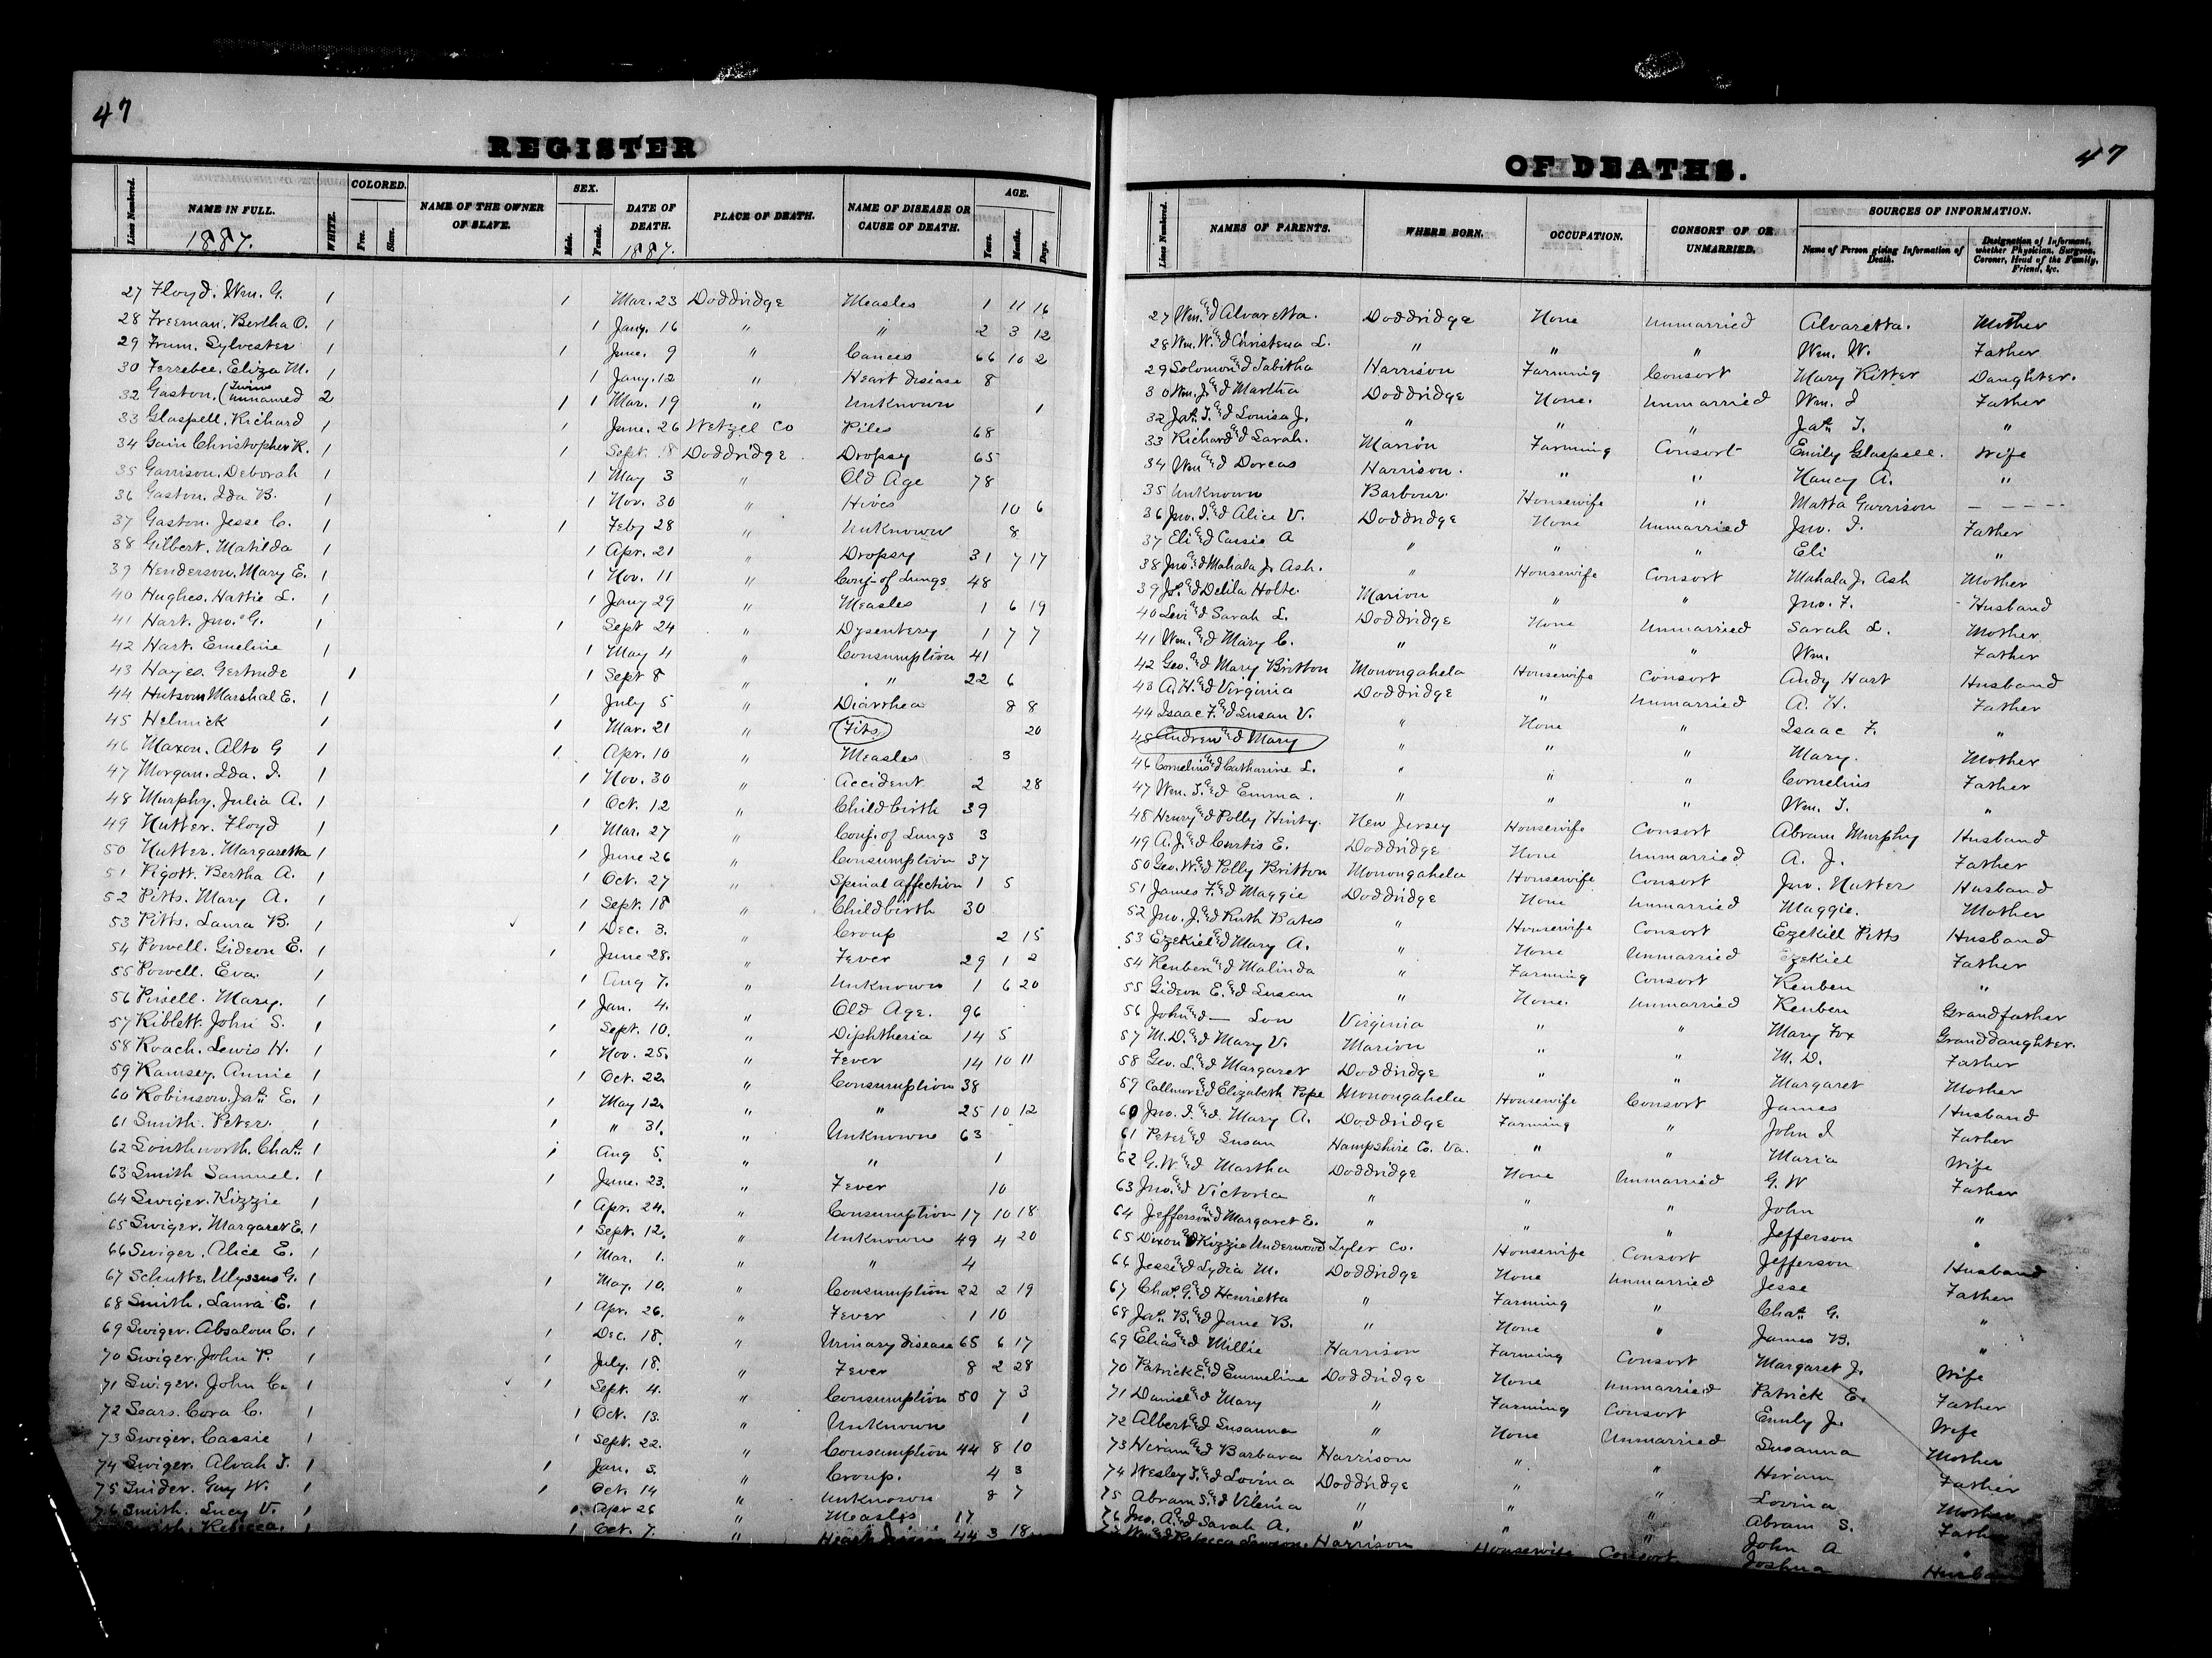 47
REGISTER
Lines Numbered. NAME IN FULL. 1887. WHITE. COLORED. Free. Slave. NAME OF THE OWNER OF SLAVE. SEX. Male. Female. DATE OF DEATH. 1887. PLACE OF DEATH. NAME OF DISEASE OR CAUSE OF DEATH. AGE. Years. Months. Days.
27 Floyd, Wm. G. 1 1 Mar. 23 Doddridge Measles 1 11 16
28 Freeman, Bertha O. 1 1 Jany. 16 " " 2 3 12
29 Frum, Sylvester 1 1 June. 9 " Cancer 66 10 2
30 Ferrebee, Eliza M. 1 1 Jany. 12 " Heart disease 8
32 Gaston, (Twins unnamed 2 1 1 Mar. 19 " Unknown 1
33 Glaspell, Richard 1 1 June. 26 Wetzel Co Piles 68
34 Gain Christopher K. 1 1 Sept. 8 Doddridge Dropsy 65
35 Garrison, Deborah 1 1 May 3 " Old Age 78
36 Gaston, Ida B. 1 1 Nov. 30 " Hives 10 6
37 Gaston, Jesse C. 1 1 Feby 28 " Unknown 8
38 Gilbert, Matilda 1 1 Apr. 21 " Dropsy 31 7 17
39 Henderson, Mary E. 1 1 Nov. 11 " Conj. of Lungs 48
40 Hughes, Hattie L. 1 1 Jany 29 " Measles 1 6 19
41 Hart, Jno. G. 1 1 Sept 24 " Dysentery 1 7 7
42 Hart, Emeline 1 1 May 4 " Consumption 41
43 Hayes, Gertrude 1 1 Sept 8 " " 22 6
44 Hutson Marshal E. 1 1 July 5 " Diarrhea 8 8
45 Helmick 1 1 Mar. 21 " Fits 20
46 Maxon, Alto G 1 1 Apr. 10 " Measles 3
47 Morgan, Ida. I. 1 1 Nov. 30 " Accident 2 28
48 Murphy, Julia A. 1 1 Oct. 12 " Childbirth 39
49 Nutter, Floyd 1 1 Mar. 27 " Conj. of Lungs 3
50 Nutter, Margaretta 1 1 June 26 " Consumption 37
51 Pigott, Bertha A. 1 1 Oct. 27 " Spinal affection 1 5
52 Pitts, Mary A. 1 1 Sept. 18 " Childbirth 30
53 Pitts, Laura B. 1 1 Dec. 3. " Croup 2 15
54 Powell, Gideon E. 1 1 June 28. " Fever 29 1 2
55 Powell, Eva. 1 1 Aug 7. " Unknown 1 6 20
56 Mary. 1 1 Jan. 4. " Old Age. 96
57 Riblett, John S. 1 1 Sept. 10. " Diphtheria 14 5
58 Roach, Lewis H. 1 1 Nov. 25. " Fever 14 10 11
59 Ramsey, Annie 1 1 Oct. 22. " Consumption 38
60 Robinson, Jas. E. 1 1 May 12. " " 25 10 12
61 Smith, Peter. 1 1 " 31. " Unknown 63
62 Southworth, Chas. 1 1 Aug 5. " " 1
63 Smith Samuel. 1 1 June. 23. " Fever 10
64 Swiger, Kizzie 1 1 Apr. 24. " Consumption 17 10 18
65 Swiger, Margaret E. 1 1 Sept. 12. " Unknown 49 4 20
66 Swiger, Alice E. 1 1 Mar. 1. " " 4
67 Schutte, Ulyssus G. 1 1 May. 10. " Consumption 22 2 19
68 Smith, Laura E. 1 1 Apr. 26. " Fever 1 10
69 Swiger, Absalom C. 1 1 Dec. 18. " Urinary disease 65 6 17
70 Swiger, John P. 1 1 July. 18. " Fever 8 2 28
71 Swiger, John C. 1 1 Sept. 4. " Consumption 50 7 3
72 Sears, Cora C. 1 1 Oct. 13. " Unknown 1
73 Swiger, Cassie 1 1 Sept. 22. " Consumption 44 8 10
74 Swiger, Alvah T. 1 1 Jan. 5. " Croup. 4 3
75 Snider, Guy W. 1 1 Oct. 14 " Unknown 8 7
76 Smith, Lucy V. 1 Apr 26 " Measles 17
Rebecca. 1 1 Oct. 7. " Heart 44 3 18
47
OF DEATHS.
Lines Numbered. NAMES OF PARENTS. WHERE BORN. OCCUPATION. CONSORT OF OR UNMARRIED. SOURCES OF INFORMATION. Name of Person giving Information of Death. Designation of Informant, whether Physician, Surgeon, Coroner, Head of the Family, Friend, &c.
27 Wm. & Alvaretta. Doddridge None Unmarried Alvaretta. Mother
28 Wm. W. & Christena L. " " " Wm. W. Father
29 Solomon & Tabitha Harrison Farming Consort Mary Ritter Daughter.
30 Wm. J. & Martha Doddridge None. Unmarried Wm. J Father
32 Jas. T. & Louisa J. " " " Jas. T. "
33 Richard & Sarah. Marion Farming Consort Emily Glaspell. Wife
34 Wm & Dorcas Harrison. " " Nancy A. "
35 Unknown Barbour. Housewife " Matta Garrison – – – – –
36 Jno. I. & Alice V. Doddridge None Unmarried Jno. I. Father
37 Eli & Cassie A " " " Eli "
38 Jno. & Mahala J. Ash. " Housewife Consort Mahala J. Ash Mother
39 Jos. & Delila Holte. Marion " " Jno. F. Husband
40 Levi & Sarah L. Doddridge None Unmarried Sarah L. Mother
41 Wm. & Mary C. " " " Wm. Father
42 Geo. & Mary Britton Monongahela Housewife Consort Andy Hart Husband
43 A. H. & Virginia Doddridge " Unmarried A. H. Father
44 Isaac F. & Susan V. " None " Isaac F. "
45 Andrew & Mary " " " Mary. Mother
46 Cornelius & Catharine L. " " " Cornelius Father
47 Wm. T. & Emma. " " " Wm. T. "
48 Henry & Polly Hinty. New Jersey Housewife Consort Abram Murphy Husband
49 A. J. & Curtis E. Doddridge None Unmarried A. J. Father
50 Geo. W. & Polly Britton Monongahela Housewife Consort Jno. Nutter Husband
51 James F. & Maggie Doddridge None Unmarried Maggie. Mother
52 Jno. J. & Ruth Bates " Housewife Consort Ezekill Pitts Husband
53 Ezekiel & Mary A. " None Unmarried Ezekiel Father
54 Reuben & Malinda " Farming Consort Reuben "
55 Gideon E. & Susan " None. Unmarried Reuben Grandfather
56 John & — Lou Virginia " " Mary Fox Granddaughter.
57 M. D. & Mary V. Marion " " M. D. Father
58 Geo. L. & Margaret Doddridge " " Margaret Mother
59 & Elizabeth Pope Monongahela Housewife Consort James Husband
60 Jno. I. & Mary A. Doddridge Farming " John I Father
61 Peter & Susan Hampshire Co. Va. " " Maria Wife
62 G. W. & Martha Doddridge None Unmarried G. W Father
63 Jno. & Victoria " " " John "
64 Jefferson & Margaret E. " " " Jefferson "
65 Dixon & Kizzie Underwood Tyler Co. Housewife Consort Jefferson Husband
66 Jesse & Lydia M. Doddridge None Unmarried Jesse Father
67 Chas. G. & Henrietta " Farming " Chas. G. "
68 Jas. B. & Jane B. " None " James B. "
69 Elias & Millie Harrison Farming Consort Margaret J. Wife
70 Patrick E. & Emmeline Doddridge None Unmarried Patrick E. Father
71 Daniel & Mary " Farming Consort Emily J. Wife
72 Albert & Susanna " None Unmarried Susanna Mother
73 Hiram & Barbara Harrison " " Hiram Father
74 Wesley T. & Lovina Doddridge " " Lovina Mother
75 Abram S. & Vilenia " " " Abram S. Father
76 Jno. A. & Sarah A. " " " John A "
Wm. & Rebecca Harrison Housewife Consort Joshua